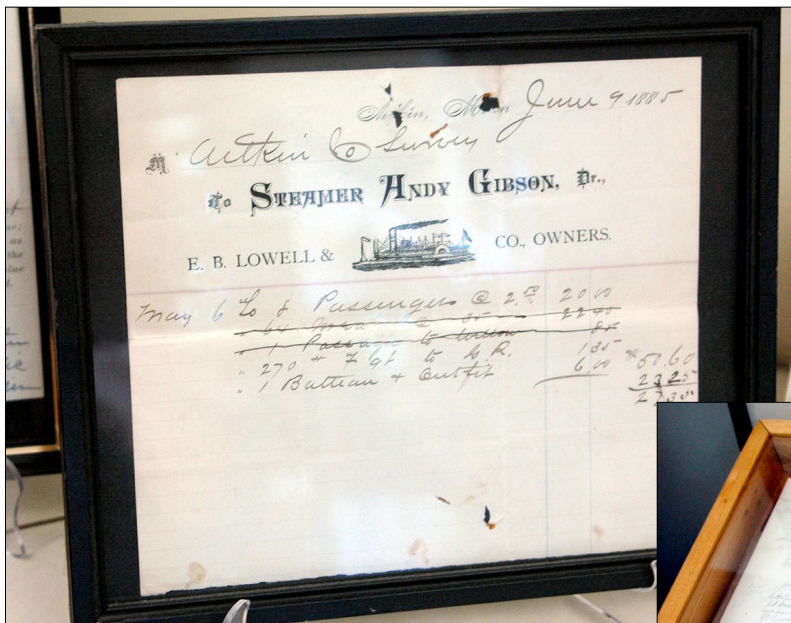 Aitkin, Minn June 9 1885
M Aitkin Co Survey
To STEAMER ANDY GIBSON, Dr.,
E. B. LOWELL & CO., OWNERS.
May 6 To 8 Passengers @ 2.50 20 00
" 64 Meals @ 35 22 40
" 1 Passage to 85
" 270 # Fgt to G.R. 1 35
" 1 Batteau + Outfit 6 00 50.60
23 25